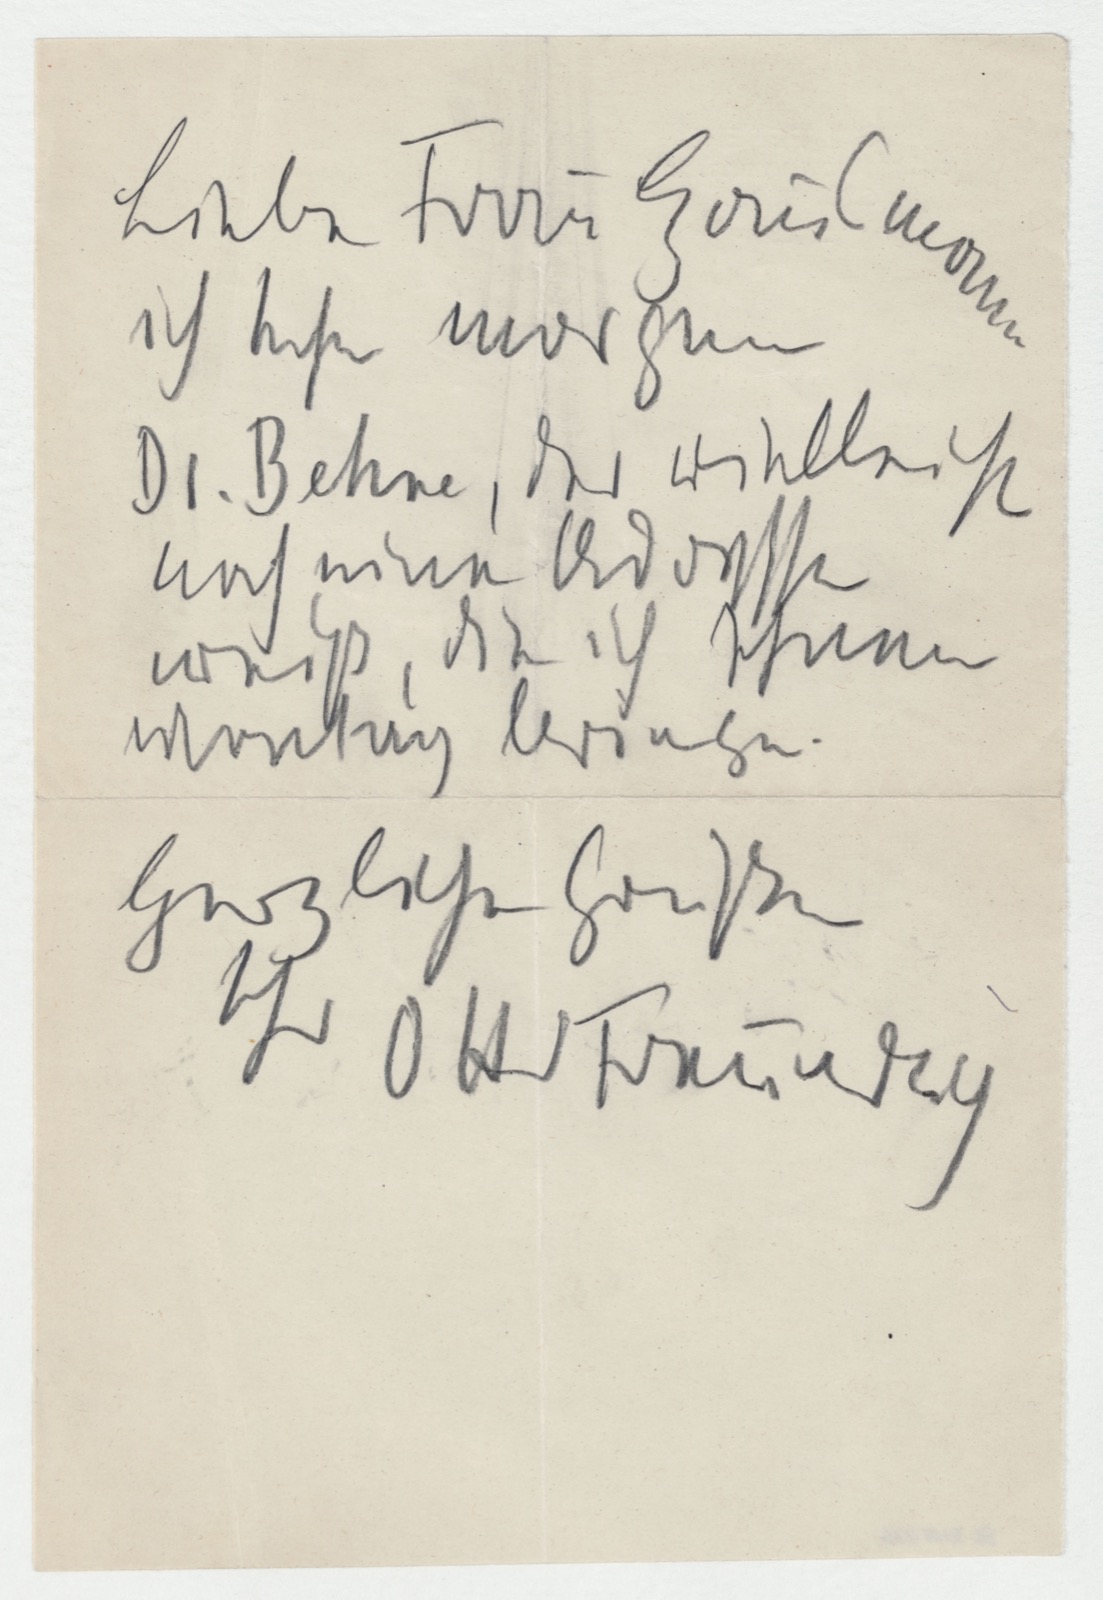 Liebe Frau Hausmann
ich sehe morgen
Dr. Behne, der vielleicht
noch eine Adresse
weiß, die ich Ihnen
Montag bringe.
Herzliche Grüße
Ihr Otto Freundlich